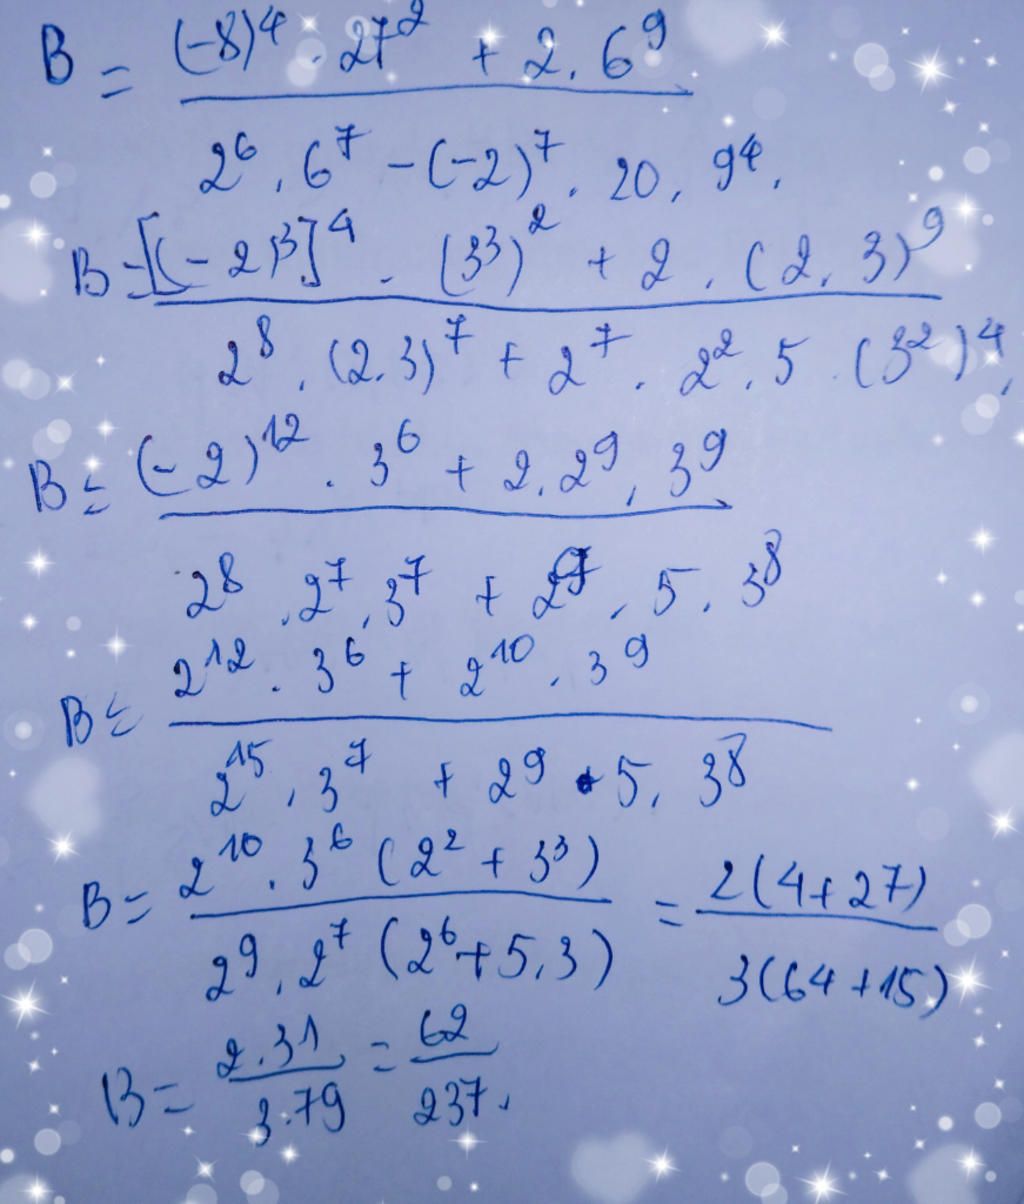 B = \frac{(-8)^4 . 27^2 + 2 . 6^9}{2^6 . 6^7 - (-2)^7 . 20 . 9^4} .
B = \frac{[(-2)^3]^4 . (3^3)^2 + 2 . (2 . 3)^9}{2^8 . (2.3)^7 + 2^7 . 2^2 . 5 . (3^2)^4} .
B = \frac{(-2)^{12} . 3^6 + 2 . 2^9 . 3^9}{2^8 . 2^7 . 3^7 + 2^9 . 5 . 3^8}
B = \frac{2^{12} . 3^6 + 2^{10} . 3^9}{2^{15} . 3^7 + 2^9 . 5 . 3^8}
B = \frac{2^{10} . 3^6 (2^2 + 3^3)}{2^9 . 2^7 (2^6 + 5.3)} = \frac{2(4+27)}{3(64+15)}
B = \frac{2.31}{3.79} = \frac{62}{237} .